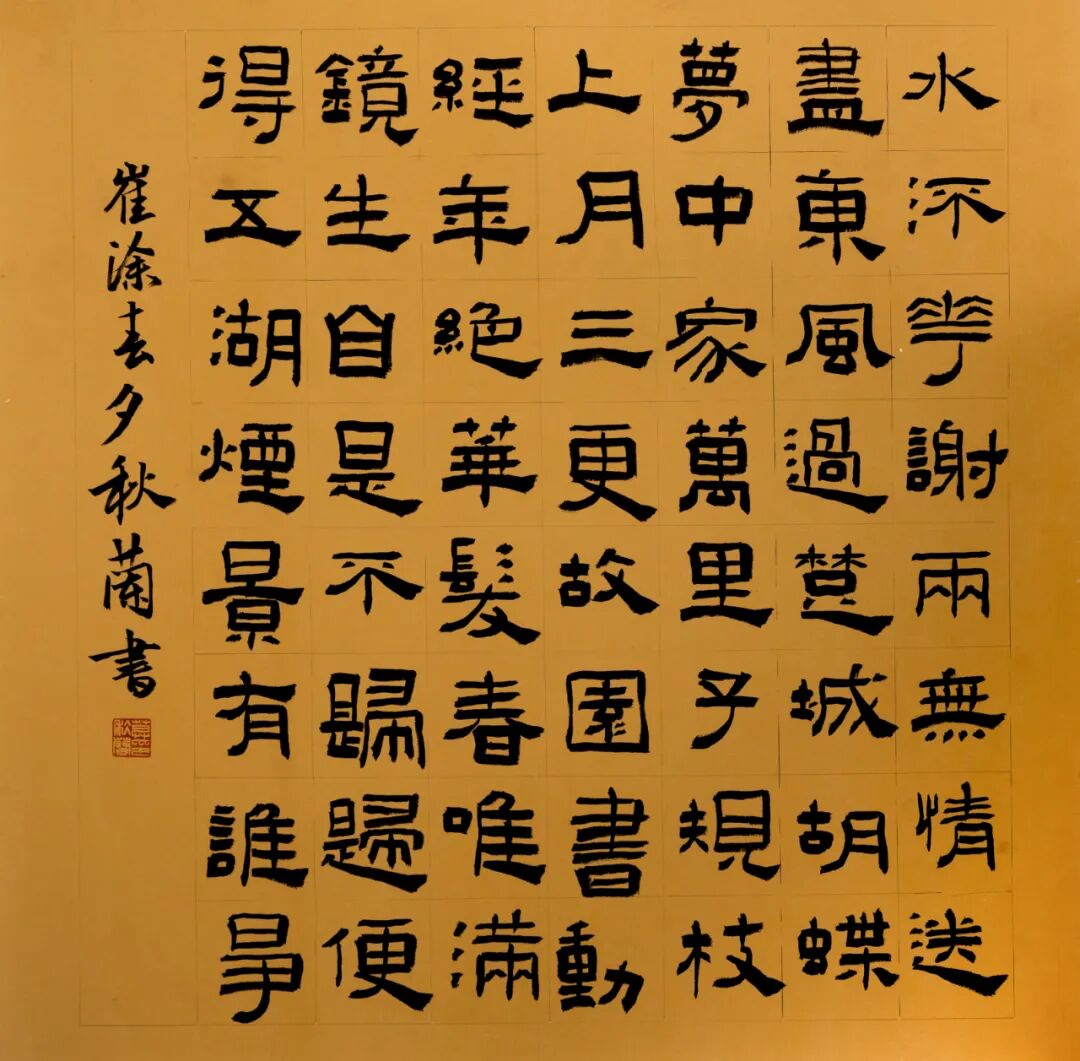 水流花謝兩無情送
盡東風過楚城胡蝶
夢中家萬里子規枝
上月三更故園書動
經年絕華髮春唯滿
鏡生自是不歸歸便
得五湖煙景有誰爭
崔涂春夕秋蘭書